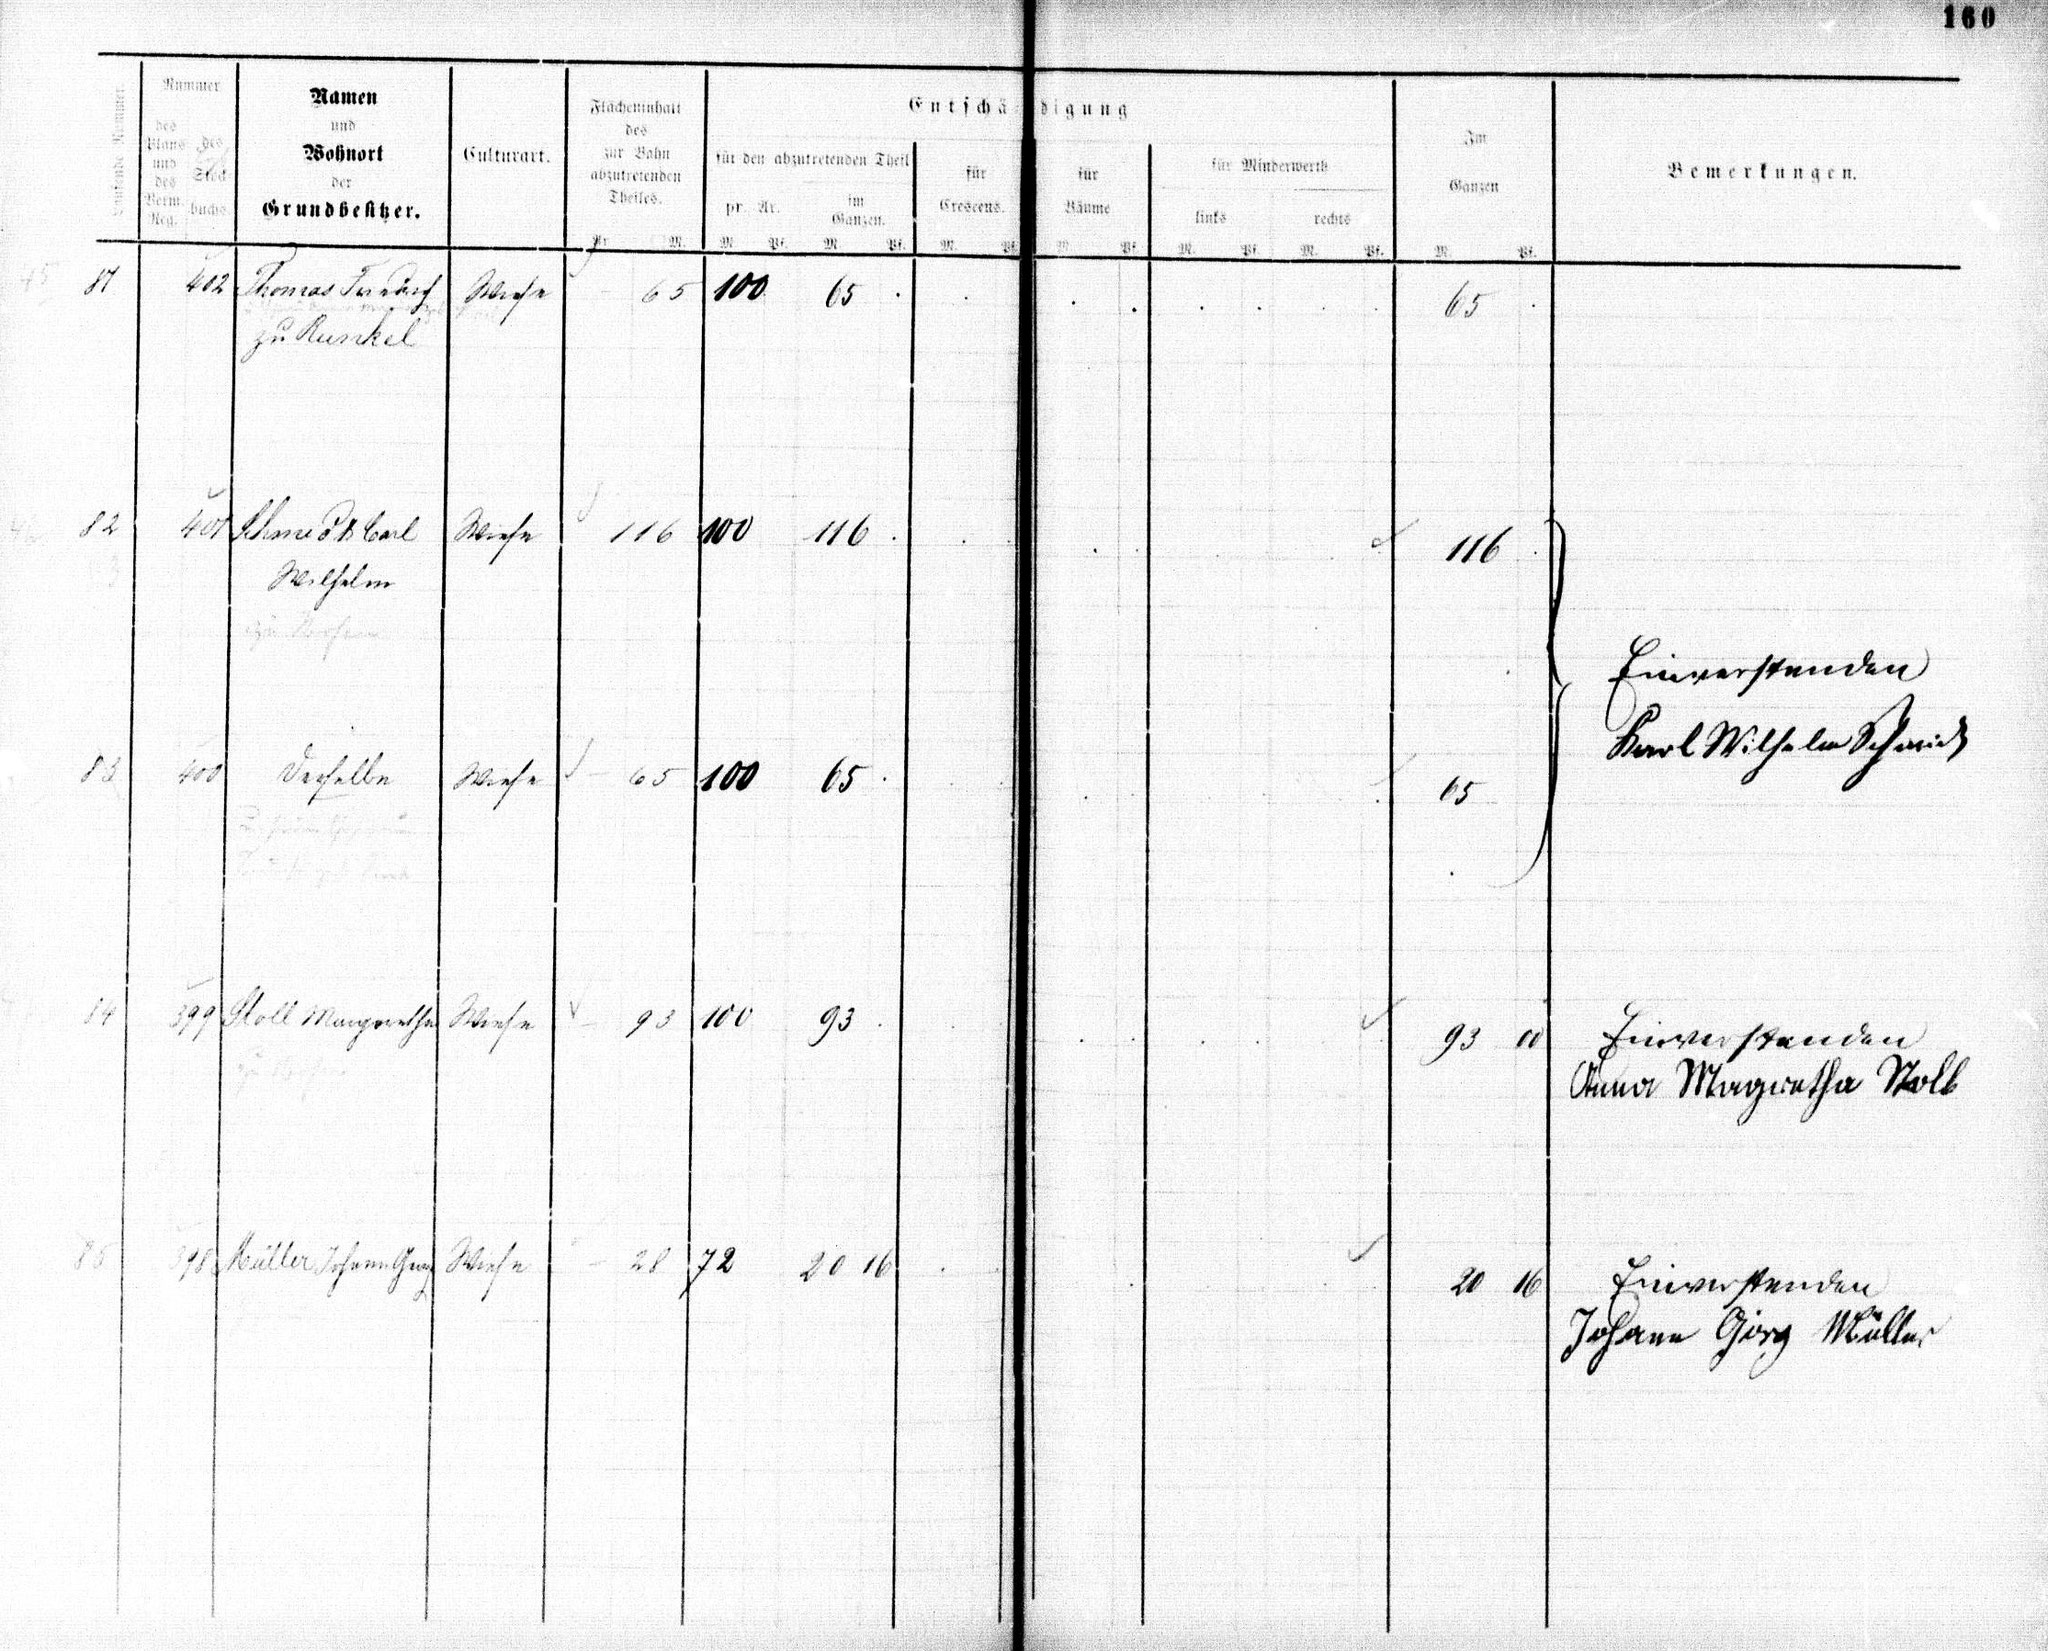 160
Laufende Nummer.
Nummer
des Plans und des Verm. Reg.
des Stock buchs.
Namen
und
Wohnort
der
Grundbesitzer.
Culturart.
Flächeninhalt
des
zur Bahn
abzutretenden
Theiles.
Ar. M.
Entschädigung
für den abzutretenden Theil
pr. Ar.
im Ganzen.
M. Pf. M. Pf.
für
Crescens.
M. Pf.
für
Bäume
M. Pf.
für Minderwerth
links rechts
M. Pf. M. Pf.
Im
Ganzen
M. Pf.
Bemerkungen.
45 81 402 Thomas Friedrich Wiese – 65 100 65 . 65 .
zu Runkel
82 401 Schmidt Carl Wiese 1 16 100 116 . 116 .
Wilhelm
Einverstanden
Karl Wilhelm Schmidt
83 400 Derselbe Wiese – 65 100 65 . 65
84 399 Stoll Margaretha Wiese – 93 100 93 . 93 00 Einverstanden
Anna Magretha Stoll
85 398 Müller Johann Georg Wiese – 28 72 20 16 20 16 Einverstanden
Johann Görg Müller